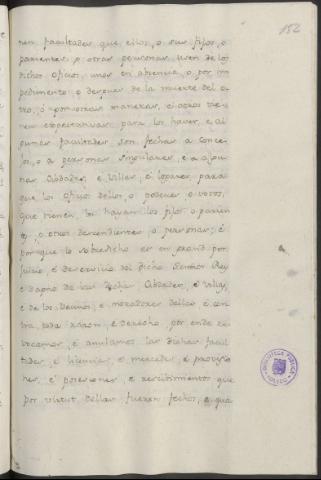 152
nen facultades que ellos, o sus fijos, o
parientes, o otras personas, usen de los
dichos oficios, unos en absencia, o por im
pedimento, o despues de la muerte del o
tro, é por otras maneras, é otros tie
nen expectativas para los haver, e al
gunas facultades son fechas a conce
jos, o a personas singulares, e a algu
nas Cibdades, e Villas, é logares, para
que los oficios dellos, o posean, o votos,
que tienen, los hayan los fijos, o parien
tes, o otros descendientes, o personas; é
porque lo sobredicho es en grand per
juicio, é deservicio del dicho Señor Rey
e dapno de las dichas Cibdades, e Villas,
é de los Vecinos, e moradores dellas é con
tra toda razon, e derecho, por ende re
vocamos, é anulamos las dichas facul
tades, é licencias, e mercedes, é provisio
nes, é posesiones, e rescibimientos que
por virtut dellas fueren fechos, e qua
BIBLIOTECA PUBLICA
TOLEDO